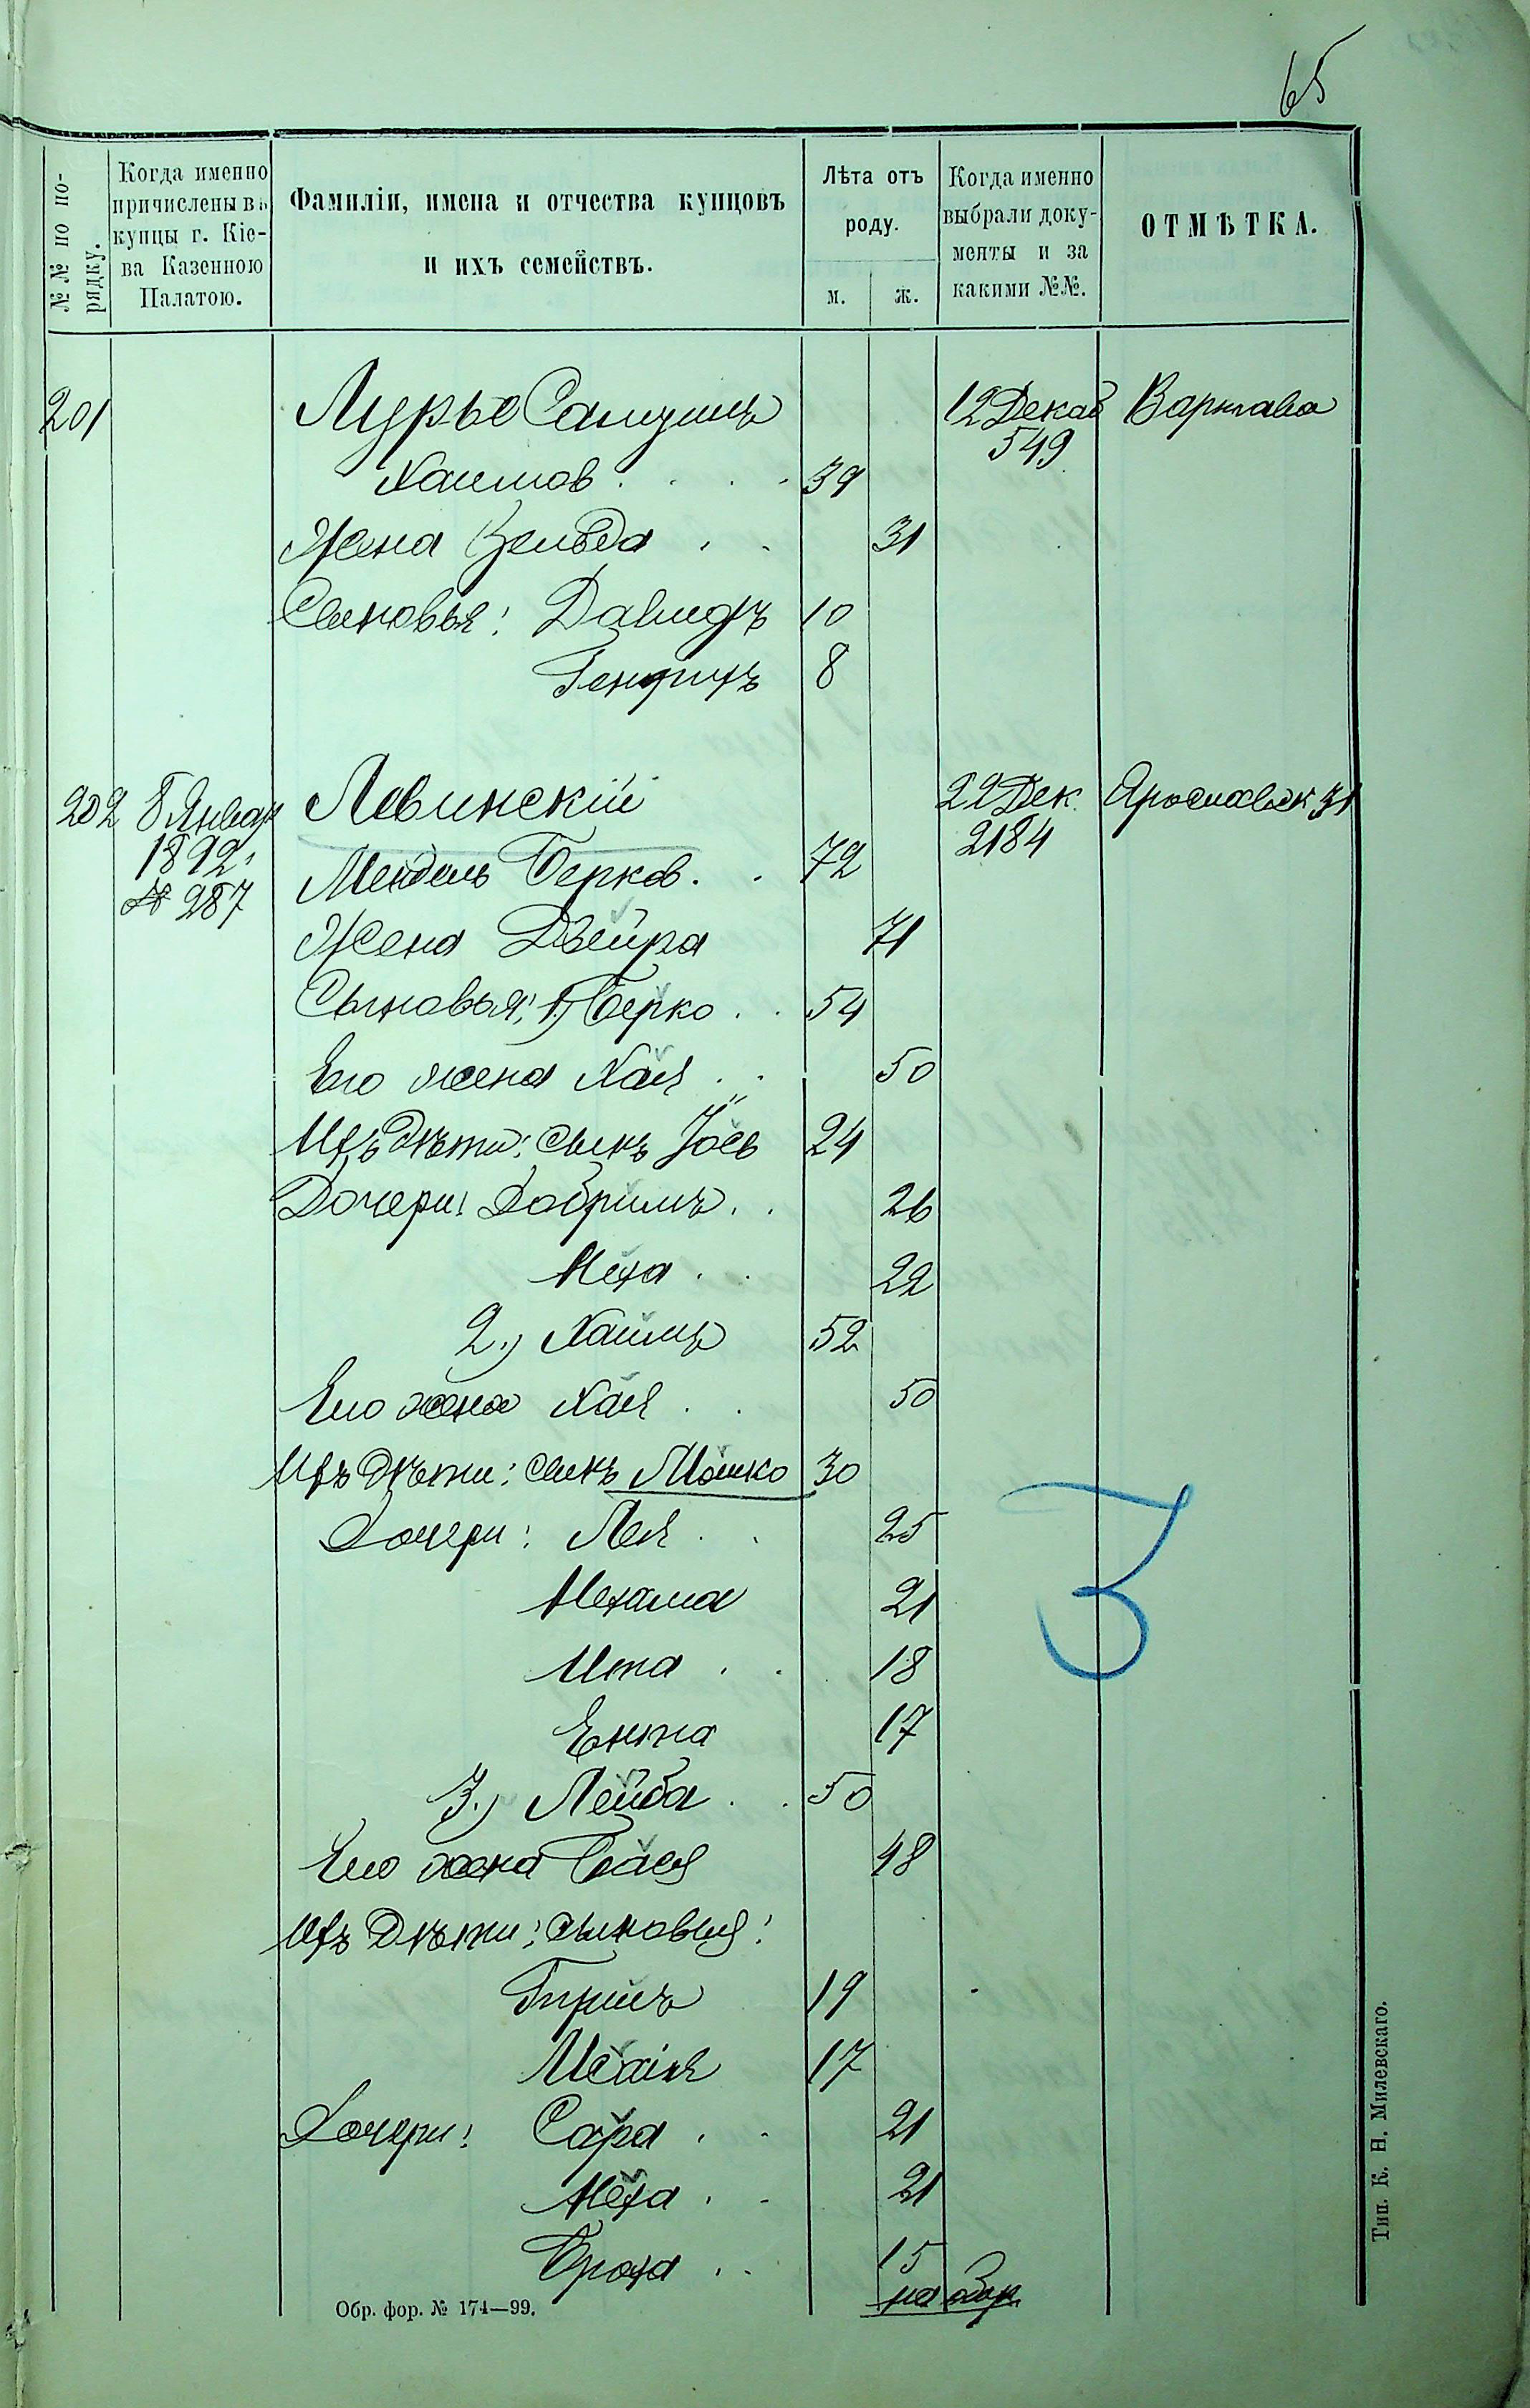 65
№№ по по-
рядку.
Когда именно
причислены въ
купцы г. Кіе-
ва Казенною
Палатою.
Фамиліи, имена и отчества купцовъ
и ихъ семействъ.
Лѣта отъ
роду.
м. ж.
Когда именно
выбрали доку-
менты и за
какими №№.
ОТМѢТКА.
201 Лурье 12 Декаб Варшава
549
Хаимов . . . . 39
Жена Зельда . . 31
Сыновья: Давидъ 10
Генрихъ 8
202 8 Январ Левинскій 22 Дек. Ярославск 31
1892 2184
№ 287 Мендель Берков. . 72
Жена Двейра 71
Сыновья: 1) Берко . . 54
Его жена Хая . . 50
Ихъ дѣти: сынъ Іось 24
Дочери: Добришъ . . 26
Неха . . 22
2.) Хаимъ 52
Его жена Хая . . 50
Ихъ дѣти: сынъ Мошко 30
Дочери: Лея . . 25
Нехама 21
Ита . . 18
Ента 17
3.) Лейба . . 50
Его жена Бася 48
Ихъ дѣти: сыновья:
Гиршъ 19
17
Дочери: Сара . . 21
Неха . . 21
Броха . . 15
на обор
Обр. фор. № 174—99.
Тип. К. Н. Милевскаго.